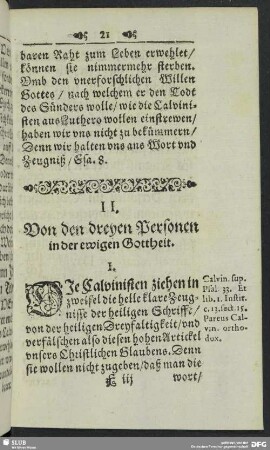 21
baren Raht zum Leben erwehlet/
können sie nimmermehr sterben.
Vmb den vnerforschlichen Willen
Gottes / nach welchem er den Todt
des Sünders wolle / wie die Calvini-
sten aus Luthero wollen einstrewen/
haben wir vns nicht zu bekümmern/
Denn wir halten vns ans Wort vnd
Zeugniß / Esa. 8.
II.
Von den dreyen Personen
in der ewigen Gottheit.
I.
DJe Calvinisten ziehen in
zweifel die helle klare Zeug-
nisse der heiligen Schrifft/
von der heiligen Dreyfaltigkeit / vnd
verfälschen also diesen hohen Artickel
vnsers Christlichen Glaubens. Denn
sie wollen nicht zugeben / daß man die
iij
wort/
Calvin. sup.
Psal. 33. Et
lib. 1. Instit.
c. 13. sect. 15.
Pareus Cal-
vin. ortho-
dox.
SLUB